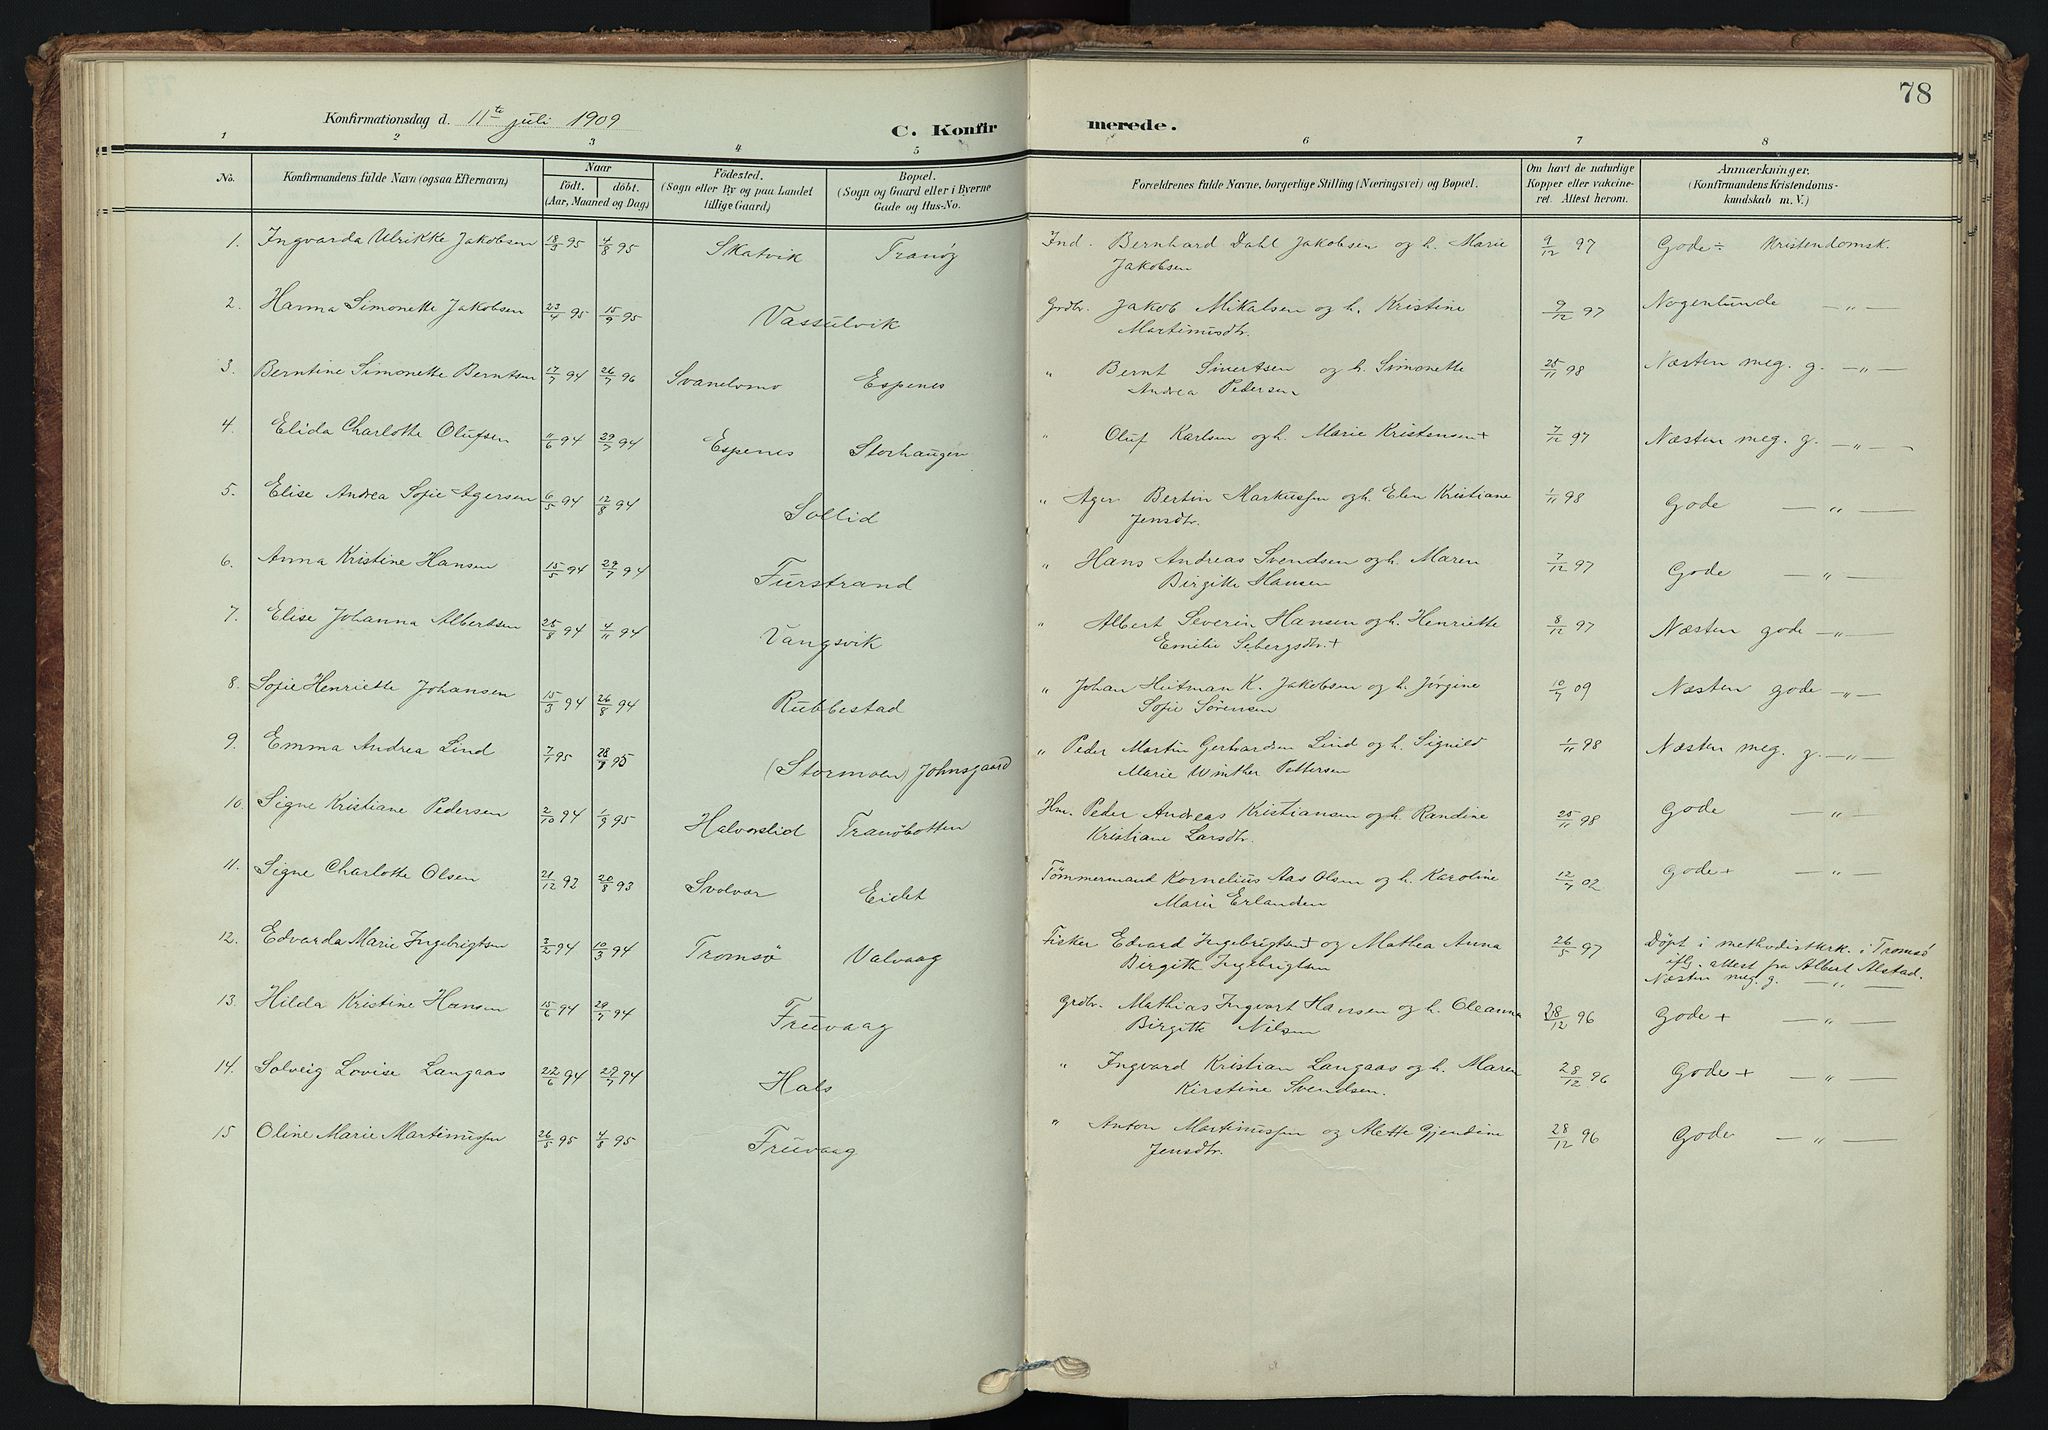 78
Konfirmationsdag d. 11te juli 1909
C. Konfirmerede.
1 2 3 4 5 6 7 8
No.
Konfirmandens fulde Navn (ogsaa Efternavn)
Naar
födt. döbt.
(Aar, Maaned og Dag)
Födested.
(Sogn eller By og paa Landet
tillige Gaard)
Bopæl.
(Sogn og Gaard eller i Byerne
Gade og Hus-No.
Forældrenes fulde Navne, borgerlige Stilling (Næringsvei) og Bopæl.
Om havt de naturlige
Kopper eller vakcine-
ret. Attest herom.
Anmærkninger.
(Konfirmandens Kristendoms-
kundskab m. V.)
1. Ingvarda Ulrikke Jakobsen 18/3 95 4/8 95 Skatvik Tranøy Ind. Bernhard Dahl Jakobsen og h. Marie 9/12 97 Gode ÷ Kristendomsk.
Jakobsen
2. Hanna Simonette Jakobsen 23/4 95 15/9 95 Vassulvik Grdbr. Jakob Mikalsen og h. Kristine 9/12 97 Nogenlunde — „ —
Martinusdtr.
3. Berntine Simonette Berntsen 17/7 94 26/7 96 Svanelvmo Espenes „ Bernt Sivertsen og h. Simonette 25/11 98 Næsten meg. g. — „ —
Andrea Pedersen
4. Elida Charlotte Olufsen 11/6 94 29/7 94 Espenes Storhaugen „ Oluf Karlsen og h. Marie Kristensen + 7/12 97 Næsten meg. g. — „ —
5. Elise Andrea Sofie Agersen 6/5 94 12/8 94 Sollid „ Ager Bertin Markussen og h. Elen Kristiane 1/11 98 Gode — „ —
Jensdtr.
6. Anna Kristine Hansen 15/5 94 29/7 94 Furstrand „ Hans Andreas Svendsen og h. Maren 7/12 97 Gode — „ —
Birgitte Hansen
7. Elise Johanna Albertsen 25/8 94 4/11 94 Vangsvik „ Albert Severin Hansen og h. Henriette 8/12 97 Næsten gode — „ —
Emilie Sebergsdtr. +
8. Sofie Henriette Johansen 15/3 94 26/8 94 Rubbestad „ Johan Heitman K. Jakobsen og h. Jørgine 10/7 09 Næsten gode — „ —
Sofie Sørensen
9. Emma Andrea Lind 7/1 95 28/7 95 (Stormoen) Johnsgaard „ Peder Martin Gerhardsen Lind og h. Signild 1/11 98 Næsten meg. g. — „ —
Marie Winther Pettersen
10. Signe Kristiane Pedersen 2/10 94 1/9 95 Halvorslid Tranøbotten Hm. Peder Andreas Kristiansen og h. Randine 25/11 98 Gode — „ —
Kristiane Larsdtr.
11. Signe Charlotte Olsen 21/12 92 20/8 93 Svolvær Eidet Tømmermand Kornelius Aas Olsen og h. Karoline 12/7 02 Gode + — „ —
Marie Erlandsen
12. Edvarda Marie Ingebrigtsen 3/2 94 10/3 94 Tromsø Valvaag Fisker Edvard Ingebrigtsen + og Mathea Anna 26/5 97 Døpt i methodistkirk. i Tromsø
Birgitte Ingebrigtsen iflg. attest fra Albert Alstad.
Næsten meg. g. — „ —
13. Hilda Kristine Hansen 15/6 94 29/7 94 Frøvaag Grdbr. Mathias Ingvart Hansen og h. Oleanna 28/12 96 Gode + — „ —
Birgitte Nilsen
14. Solveig Lovise Langaas 22/6 94 29/7 94 Hals „ Ingvard Kristian Langaas og h. Maren 28/12 96 Gode + — „ —
Kirstine Svendsen.
15 Oline Marie Martinussen 26/5 95 4/8 95 Frøvaag „ Anton Martinussen og Mette Gjendine 28/12 96 Gode — „ —
Jensdtr.